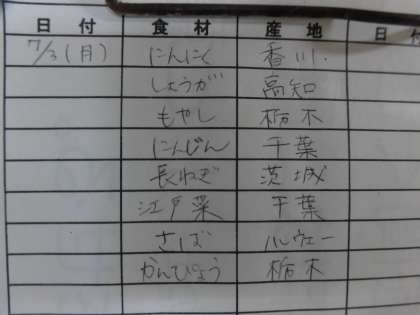 日付 食材 産地 日付
7/3(月) にんにく 香川
しょうが 高知
もやし 栃木
にんじん 千葉
長ねぎ 茨城
江戸菜 千葉
さば ノルウェー
かんぴょう 栃木